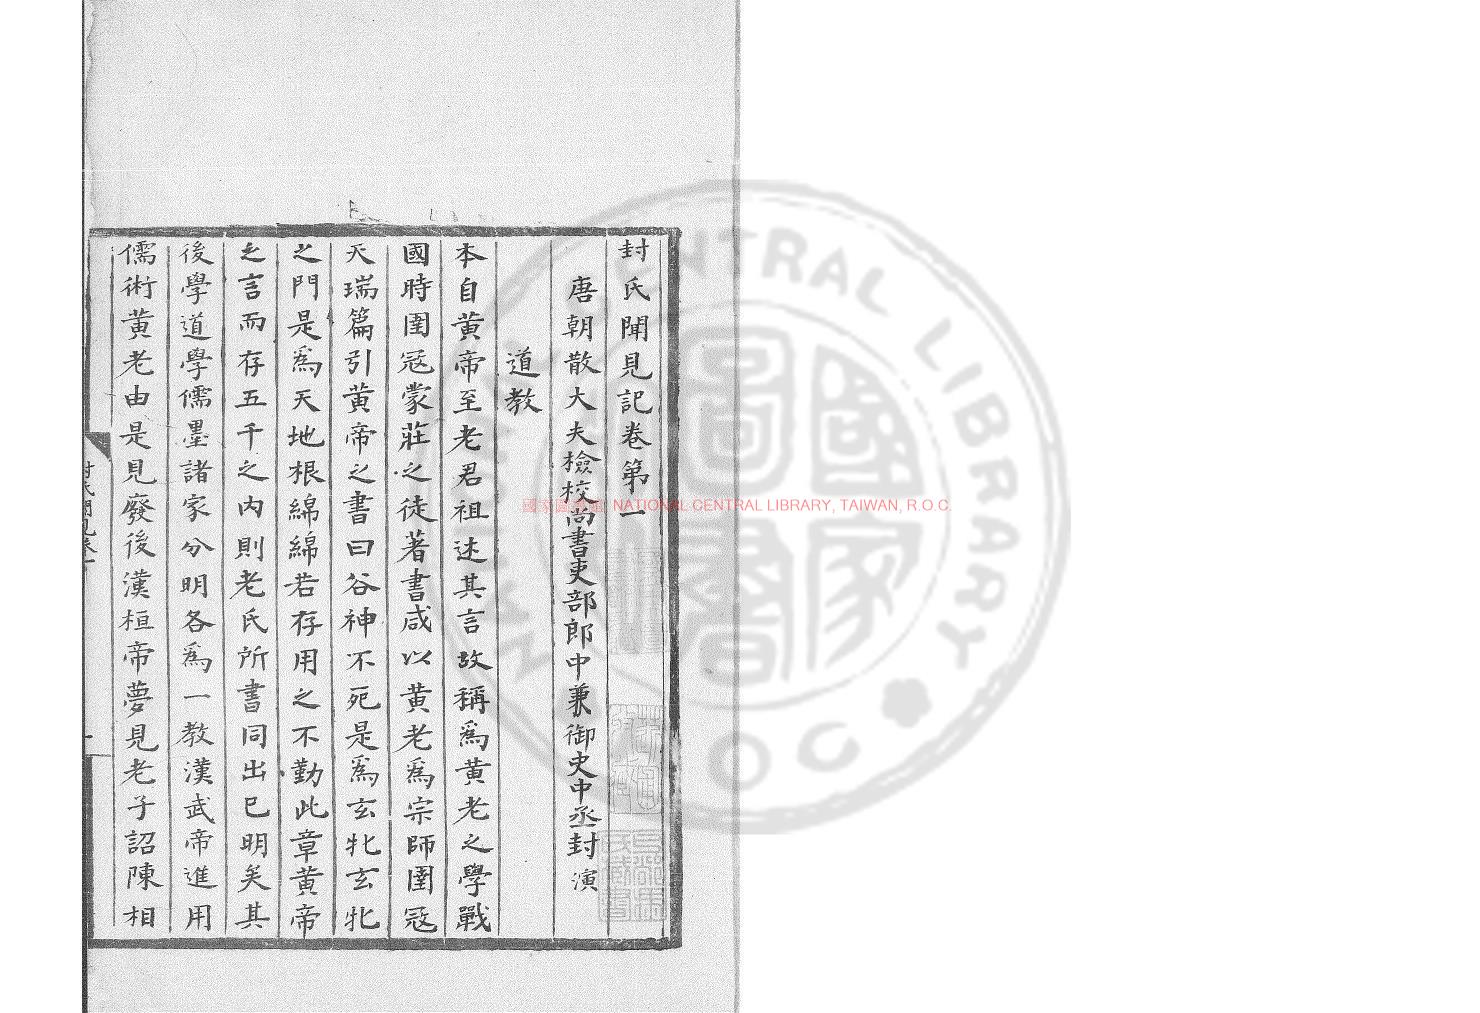 封氏聞見記卷第一
唐朝散大夫檢校尚書吏部郎中兼御史中丞封演
道教
本自黄帝至老君祖述其言故稱為黄老之學戰
國時圄冦蒙莊之徒著書咸以黄老為宗師圄冦
天瑞篇引黄帝之書曰谷神不死是為玄牝玄牝
之門是為天地根綿綿若存用之不勤此章黄帝
之言而存五千之内則老氏所書同出已明矣其
後學道學儒墨諸家分明各為一教漢武帝進用
儒術黄老由是見廢後漢桓帝夢見老子詔陳相
封氏聞見卷一
一
國家圖書館 NATIONAL CENTRAL LIBRARY, TAIWAN, R.O.C.
NATIONAL CENTRAL LIBRARY
R.O.C.
國家圖書